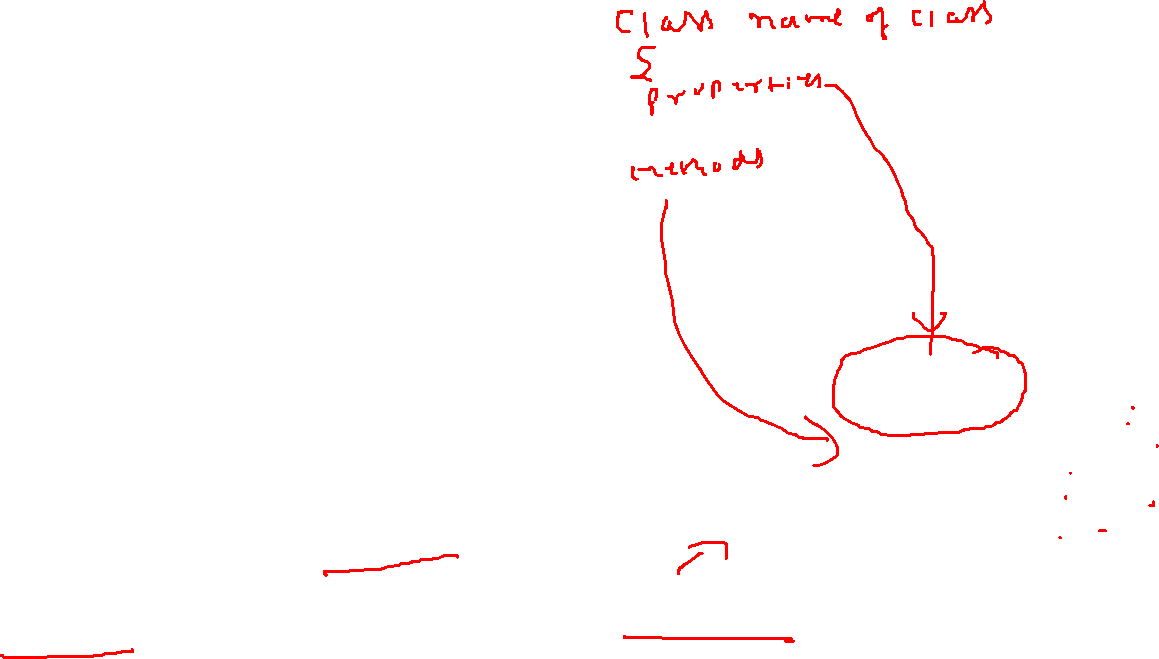 Class name of class
{
properties
methods